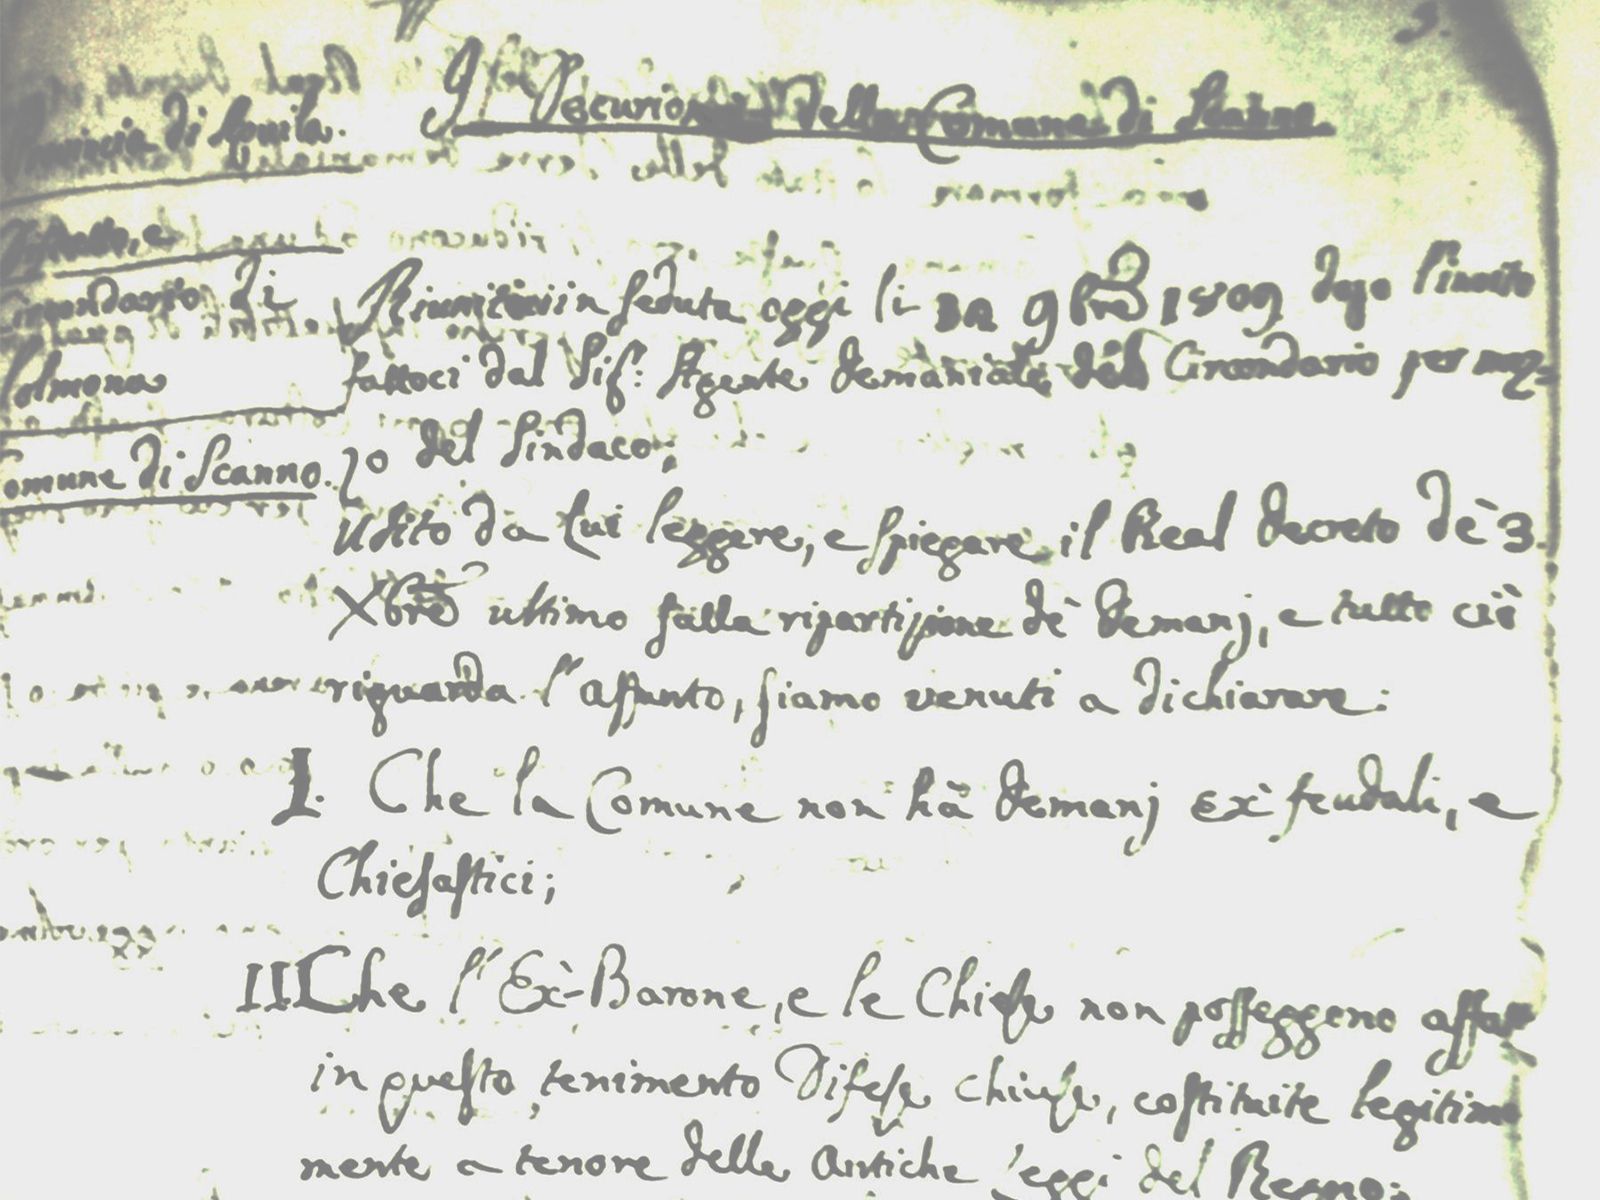 3.
Provincia di Aquila.
Distretto, e
Circondario di
Solmona
Comune di Scanno.
I Decurioni della Comune di Scanno
Riuniti in seduta oggi li 9bre 1809 dopo l'invito
fattoci dal Sig: Agente demaniale del Circondario per mez=
zo del Sindaco;
Udito da lui leggere, e spiegare il Real decreto de' 3.
Xbre ultimo sulla ripartizione de' demanj, e tutto ciò
riguarda l'assunto, siamo venuti a dichiarare:
I. Che la Comune non hà demanj ex feudali, e
Chiesastici;
II Che l'Ex-Barone, e le Chiese non posseggono affat
in questo tenimento Difese chiuse, costituite legitima
mente a tenore delle antiche Leggi del Regno;